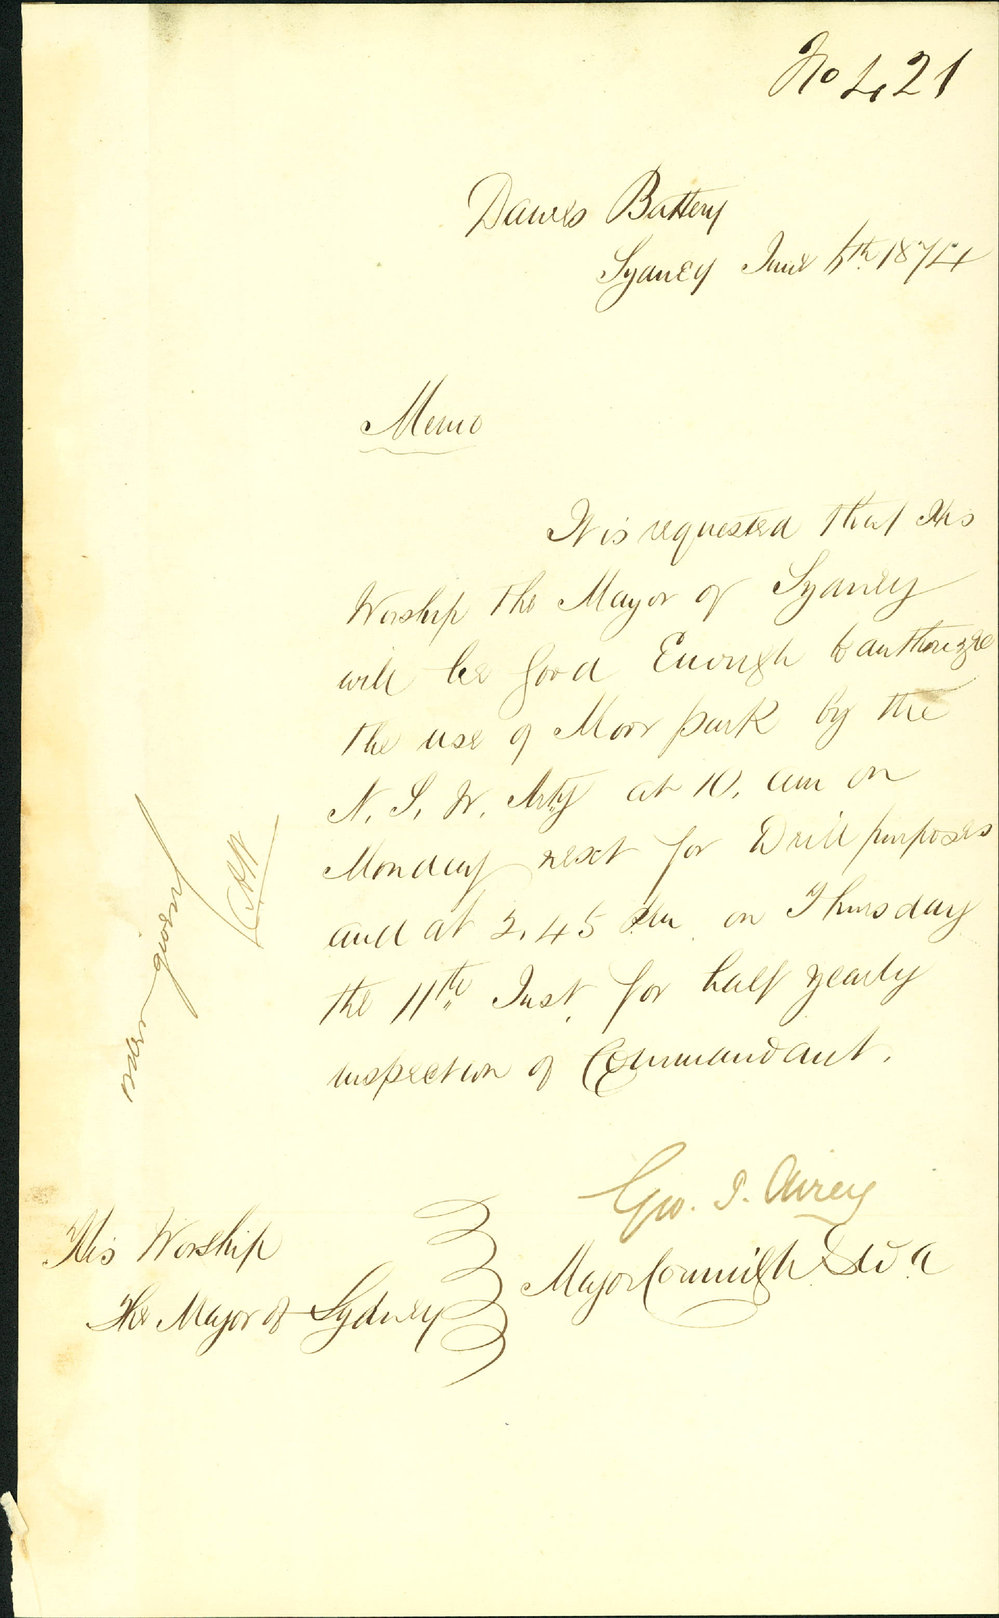 No 421
Dawes Battery
Sydney June 5th 1874
Memo
It is requested that His
Worship the Mayor of Sydney
will be good Enough to authorize
the use of Moor park by the
N. S. W. Arty at 10. am on
Monday next for Drill purposes
and at 2.45 Pm on Thursday
the 11th Inst. for half yearly
inspection of Commandant.
Geo. J. Airey
Major Commdg
His Worship
The Mayor of Sydney